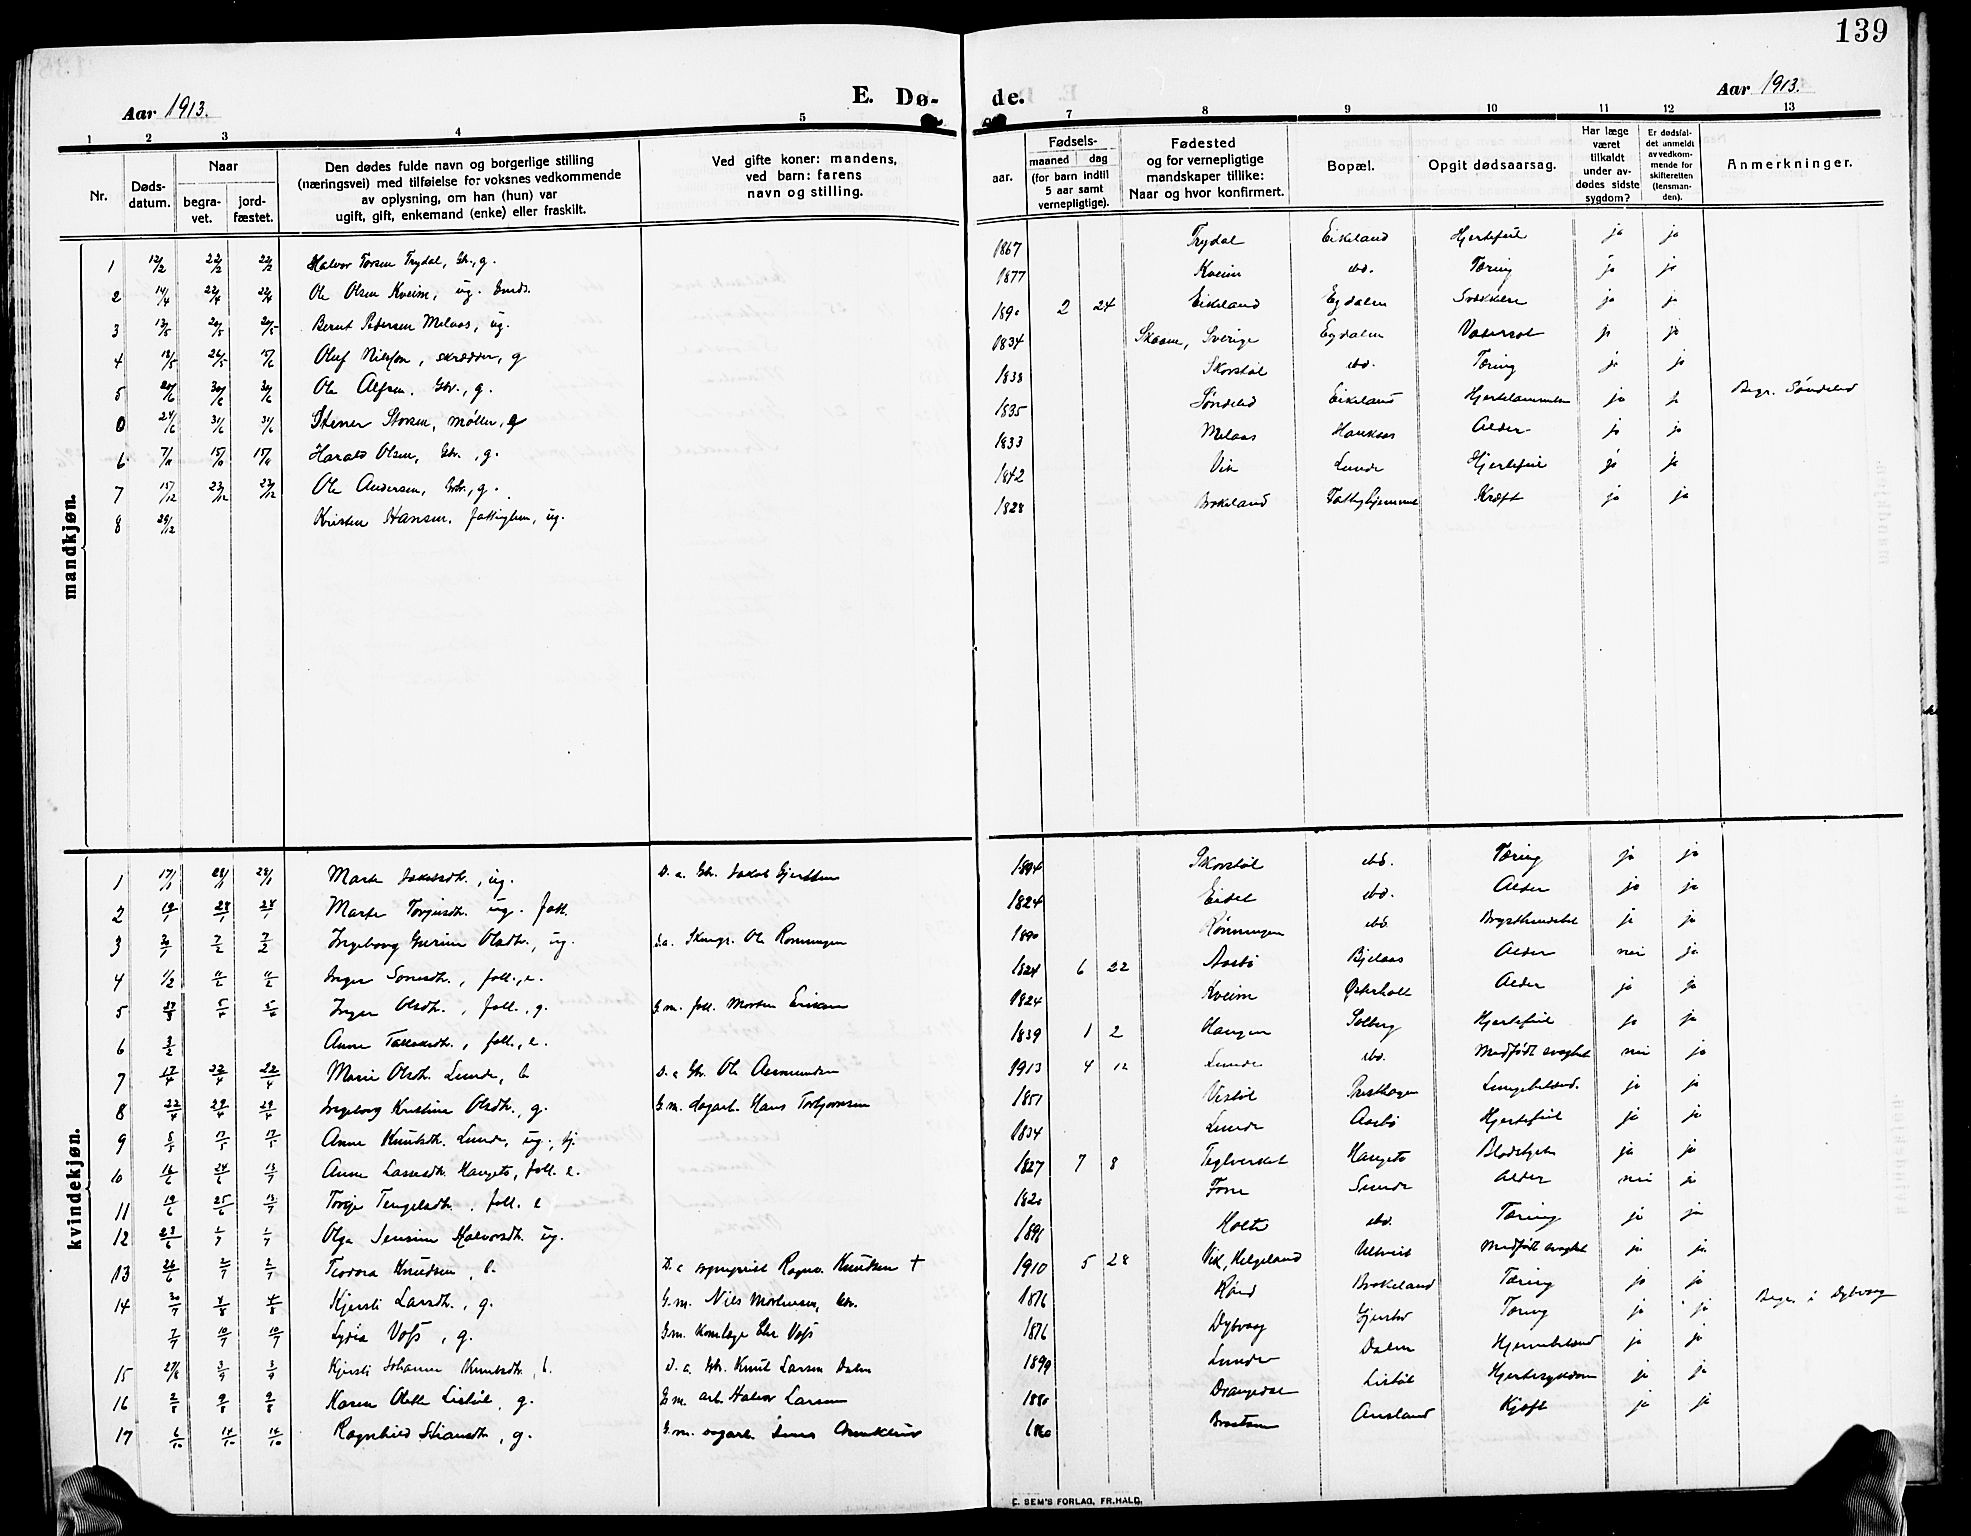 139
Aar 1913.
E. Dø-
de.
Aar 1913.
1 2 3 4 5 7 8 9 10 11 12 13
Nr.
Døds-
datum.
Naar
begra-
vet.
jord-
fæstet.
Den dødes fulde navn og borgerlige stilling
(næringsvei) med tilføielse for voksnes vedkommende
av oplysning, om han (hun) var
ugift, gift, enkemand (enke) eller fraskilt.
Ved gifte koner: mandens,
ved barn: farens
navn og stilling.
Fødsels-
aar.
maaned
dag
(for barn indtil
5 aar samt
vernepligtige).
Fødested
og for vernepligtige
mandskaper tillike:
Naar og hvor konfirmert.
Bopæl.
Opgit dødsaarsag.
Har læge
været
tilkaldt
under av-
dødes sidste
sygdom?
Er dødsfal-
det anmeldt
av vedkom-
mende for
skifteretten
(lensman-
den).
Anmerkninger.
mandkjøn.
1 12/2 22/2 22/2 Halvor Torsen Trydal, Gbr., g. 1867 Trydal Eikeland Hjertefeil ja ja
2 14/4 22/4 22/4 Ole Olsen Kveim, ug. 1877 Kveim ibd. Tæring ja ja
3 13/5 20/5 20/5 Bernt Pedersen Melaas, ug. 1890 2 24 Eikeland Egdalen ja ja
4 18/5 26/5 15/6 Oluf Nilsson, skrædder, g 1834 Skaane, Sverige Egdalen Vatersot ja ja
5 20/6 30/6 30/6 Ole Alfsen, Gbr., g. 1838 Skorstøl ibd. Tæring ja ja
0 24/6 31/6 31/6 Stener Storsen, møller, g 1835 Søndeled Eikeland Hjertelammelse ja ja Begr. Søndeled
6 7/11 15/11 15/11 Harald Olsen, Gbr., g. 1833 Melaas Haukaas Alder ja ja
7 15/12 23/12 23/12 Ole Andersen, Gbr., g. 1842 Vik Lunde Hjertefeil ja ja
8 29/12 Kristen Hansen, fattiglem, ug. 1828 Brokeland Fattighjemmet Kræft ja ja
kvindekjøn.
1 17/1 28/1 28/1 Marte Jakobsdtr., ug. D. a. Gbr. Jakob Gjertsen 1894 Skorstøl ibd. Tæring ja ja
2 19/1 28/1 28/1 Marte Torjusdtr. ug. fatt. 1824 Eidet ibd. Alder ja ja
3 30/1 7/2 7/2 Ingeborg Gurine Olsdtr., ug. D.a. Ole Rønningen 1890 Rønningen ibd. ja ja
4 1/2 11/2 11/2 Inger fatt., e. 1824 6 22 Aasbø Bjelaas Alder nei ja
5 27/3 5/4 5/4 Inger Olsdtr., fatt., g. G.m. fatt. Morten Eriksen 1824 Kveim Østerholt Alder ja ja
6 3/2 Anne Tallaksdtr., fatt., e. 1839 1 2 Haugen Solberg Hjertefeil ja ja
7 17/4 22/4 22/4 Marie Olsdtr. Lunde, b D. a Gbr. Ole Aasmundsen 1913 4 12 Lunde ibd. Medfødt svaghet nei ja
8 22/4 29/4 29/4 Ingeborg Kristine Olsdtr., g. G.m. dagarb. Hans Torbjørnsen 1851 Vestøl Presthagen Lungebetænd. ja ja
9 5/5 17/5 17/5 Anne Knutsdtr. Lunde, ug., tj. 1834 Lunde Aasbø Hjertefeil ja ja
10 16/6 24/6 13/7 Anne Larsdtr. Haugeto, fatt. e. 1827 7 8 Teglverket Haugeto ja ja
11 19/6 25/6 13/7 Torje Tengelsdtr., fatt. e 1820 Lunde Alder nei ja
12 23/6 1/7 1/7 Olga Jensine Halvorsdtr. ug. 1896 Holte ibd. Tæring ja ja
13 26/6 2/7 2/7 Teodora Knudsen, b. D. a Ragnv. Knudsen + 1910 5 28 Vik, Helgeland Ulltveit Medfødt svaghet ja ja
14 30/7 4/8 4/8 Kjersti Larsdtr., g. G.m. Nils Mortensen, Gbr. 1876 Brokeland Tæring ja ja
7/7 10/7 10/7 Lydia Voss, g. G.m. Komlæge Voss 1876 Dybvaag Gjerstad Tæring ja ja Begr. i Dybvaag
15 27/8 3/9 3/9 Kjersti Johanne Knutsdtr., b. D. a. Gbr. Knut Larsen Dalen 1899 Lunde Dalen Hjernebetænd ja ja
16 2/8 9/8 9/8 Karen Olette Listøl, g. G.m. arb. Halvor Larsen 1880 Drangedal Listøl Hjertesygdom ja ja
17 6/10 14/10 14/10 Ragnhild g. G.m. 1860 Ausland ja ja
E. SEM'S FORLAG, FR.HALD.